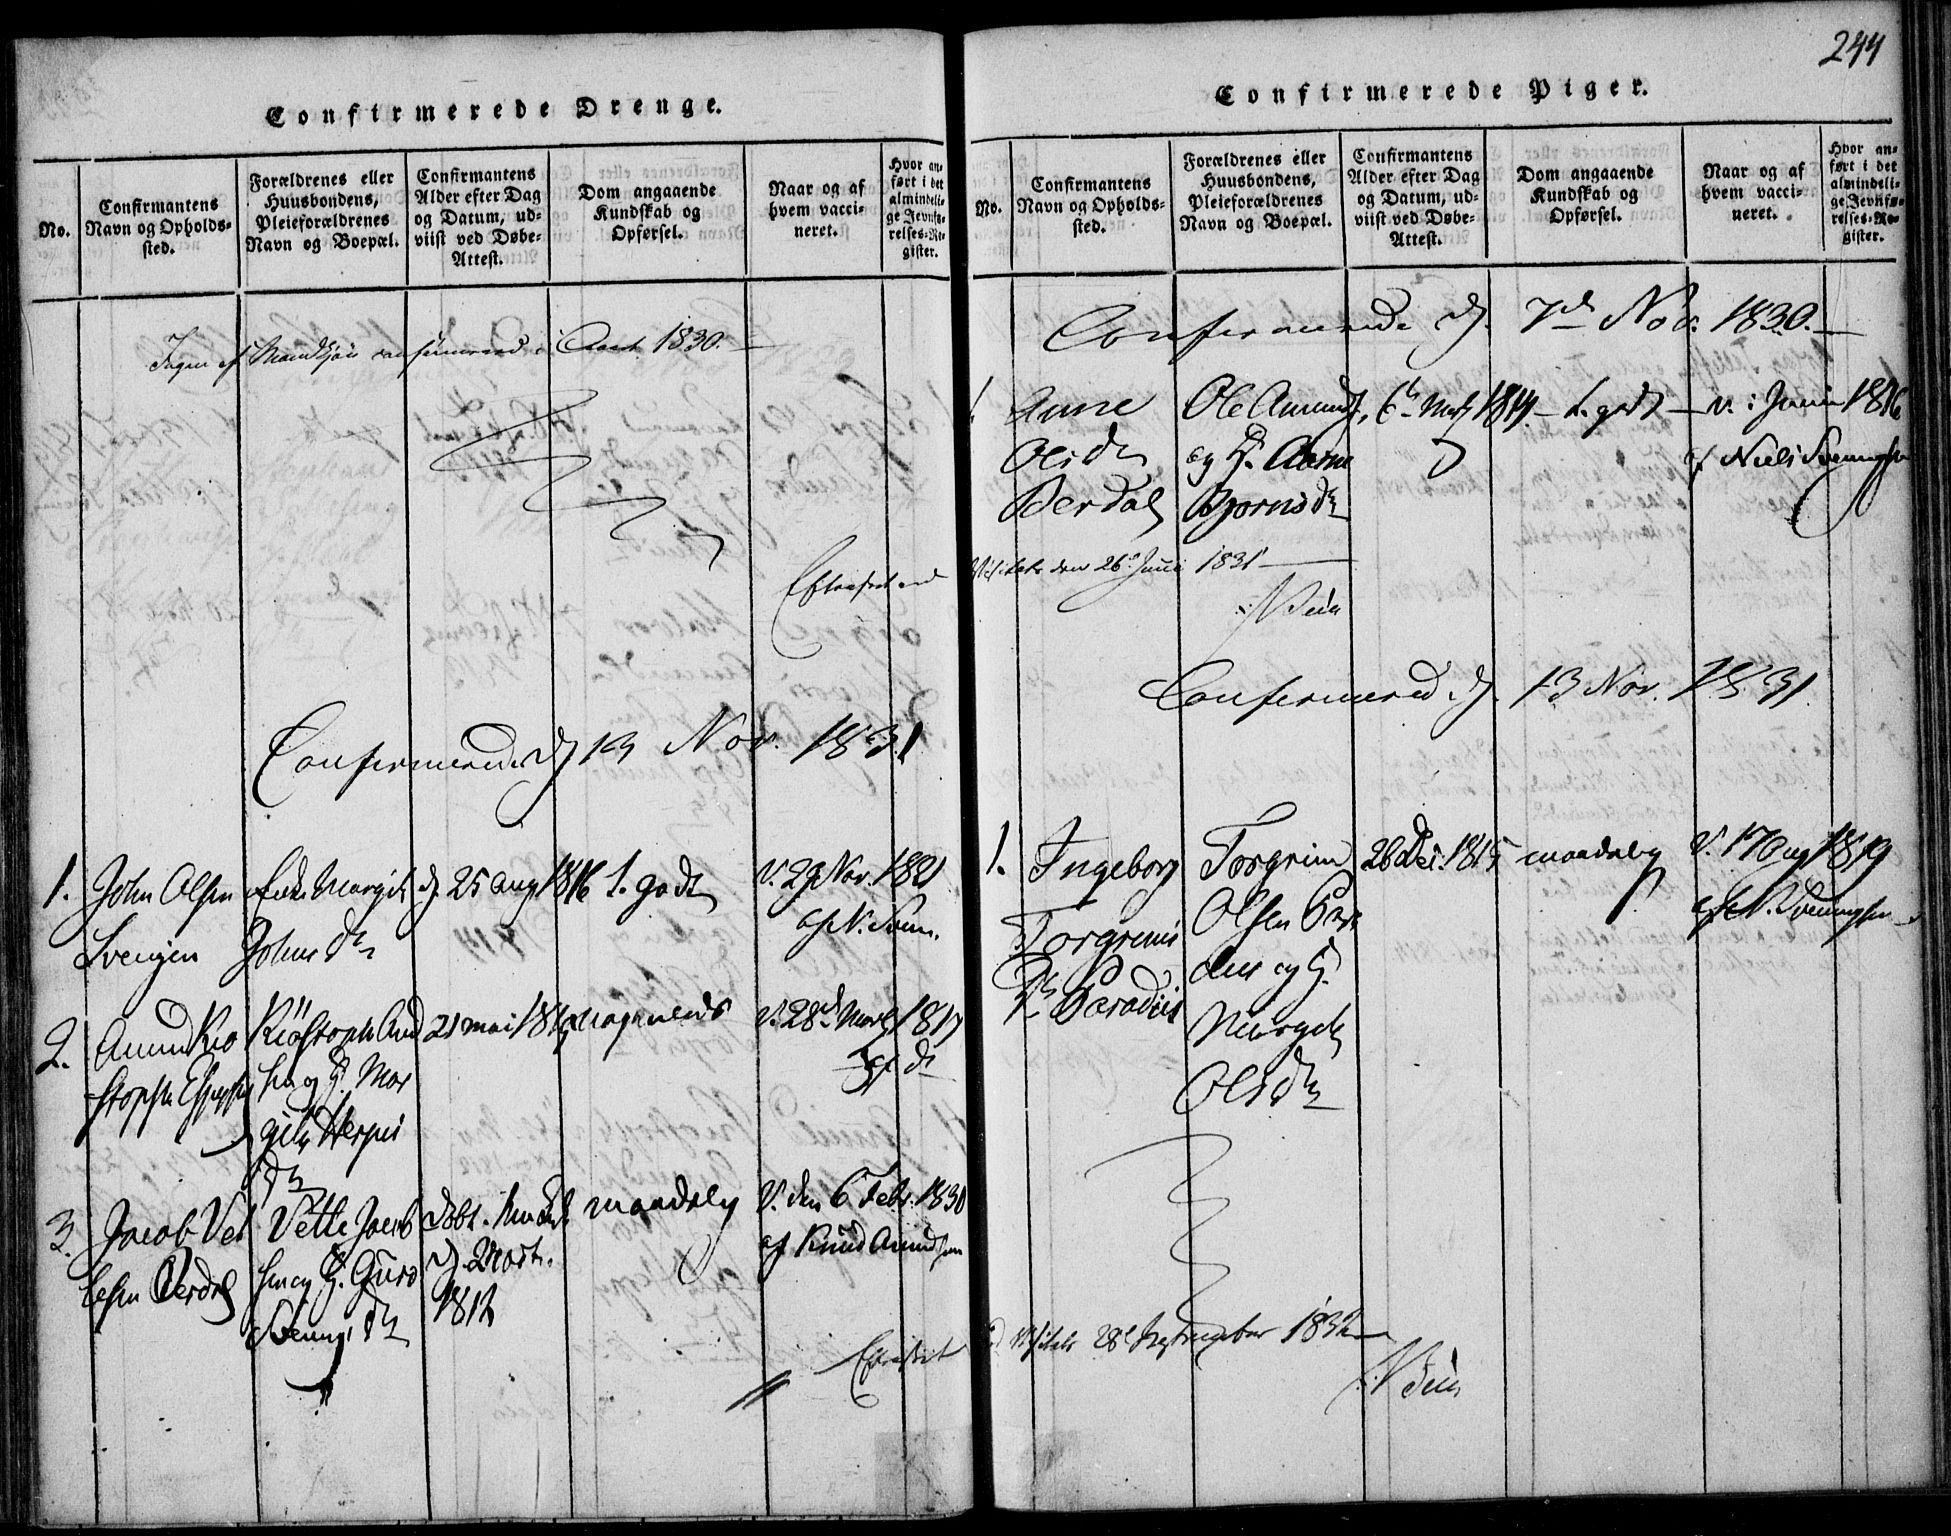 244
Confirmerede Drenge.
No.
Confirmantens
Navn og Opholds-
sted.
Forældrenes eller
Huusbondens,
Pleieforældrenes
Navn og Boepæl.
Confirmantens
Alder efter Dag
og Datum, ud-
viist ved Døbe-
Attest.
Dom angaaende
Kundskab og
Opførsel.
Naar og af
hvem vacci-
neret.
Hvor an-
ført i det
almindeli-
ge Jevnfø-
relses-Re-
gister.
Ingen af Mandkjøn confirmered i Aaret 1830.
Confirmered d. 13 Nov. 1831
1.
John Olsen
Svenjen
Enke Margit
Johnsd.
d. 25 Aug 1816
1. godt
V. 29 Nov. 1821
af N. Sven.
2.
Amund
21 Mai
V. 28d Marts 1817
af do
3.
Jacob Vet
lesen Berdal
Vetle Jacob
sen og H. Guro
Svenungsd.
døbt.
d. Mart.
1812
maadelig
V. den 6 Febr. 1830
af Knud Amundsen
Efterseet
Confirmerede Piger.
No.
Confirmantens
Navn og Opholds-
sted.
Forældrenes eller
Huusbondens,
Pleieforældrenes
Navn og Boepæl.
Confirmantens
Alder efter Dag
og Datum, ud-
viist ved Døbe-
Attest.
Dom angaaende
Kundskab og
Opførsel.
Naar og af
hvem vacci-
neret.
Hvor an-
ført i det
almindeli-
ge Jevnfø-
relses-Re-
gister.
Confirmerede d. 7d Nov. 1830.
Anne
Olsd.
Berdal
Ole Amunds.
og H. Aasne
Bjørnsd.
1. godt
v. i Junii 1816
af Niels Svenungsen
Visitats den 26 Juni 1831
Confirmered d. 13 Nov. 1831.
1.
Ingeborg
Torgrims
d. Paradiis
Torgrim
Olsen Para
dies og H.
Margit
Olsd.
26 Dec. 1815
maadelig
V. 17 Aug 1819
af N. Svenungsen
Visitats 28 September 1832